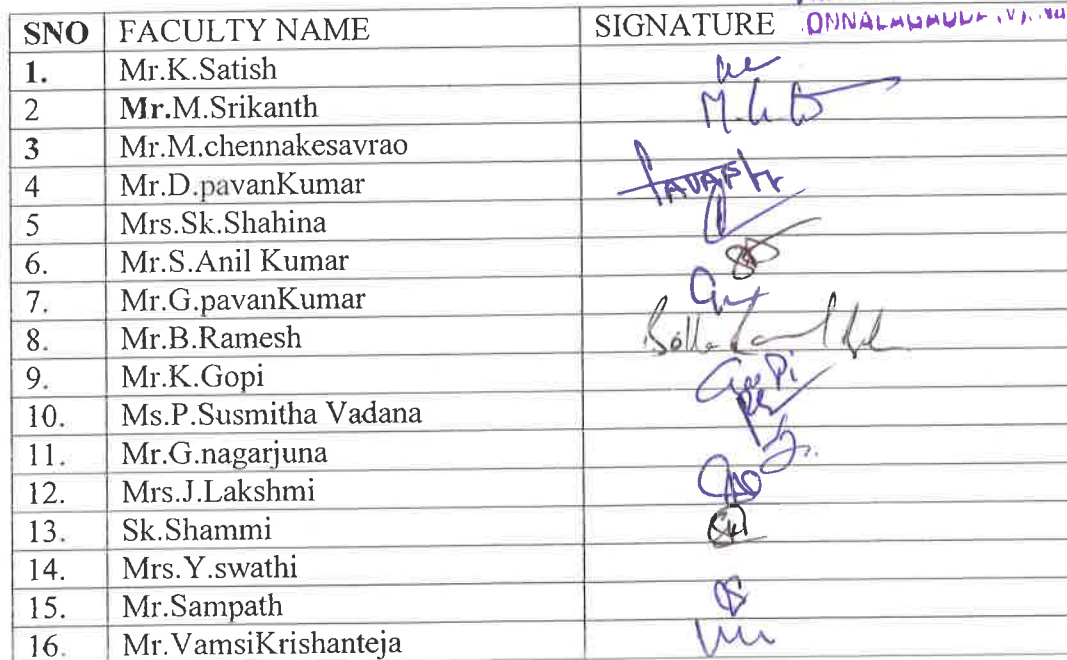 SNO FACULTY NAME SIGNATURE
1. Mr.K.Satish
2 Mr.M.Srikanth
3 Mr.M.chennakesavrao
4 Mr.D.pavanKumar
5 Mrs.Sk.Shahina
6. Mr.S.Anil Kumar
7. Mr.G.pavanKumar
8. Mr.B.Ramesh
9. Mr.K.Gopi GoPi
10. Ms.P.Susmitha Vadana
11. Mr.G.nagarjuna
12. Mrs.J.Lakshmi
13. Sk.Shammi
14. Mrs.Y.swathi
15. Mr.Sampath
16. Mr.VamsiKrishanteja